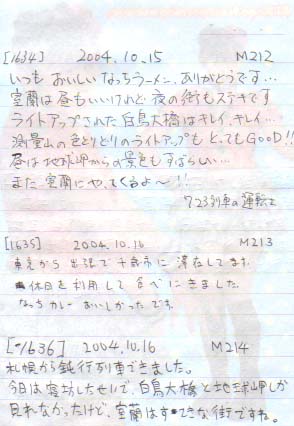 [1634] 2004.10.15 M212
いつも おいしい なっちラーメン、ありがとうです…
室蘭は昼もいいけれど 夜の街もステキです
ライトアップされた 白鳥大橋はキレイ、キレイ…
測量山の色とりどりのライトアップも とってもGOOD!!
昼は地球岬からの景色もすばらしい…
また 室蘭にやってくるよ〜!!
723列車の運転士
[1635] 2004.10.16 M213
東京から 出張で 千歳市に 滞在してます。
休日を利用して 食べにきました。
なっち カレー おいしかったです。
[1636] 2004.10.16 M214
札幌から鈍行列車できました。
今日は寝坊したせいで、白鳥大橋と地球岬しか
見れなかったけど、室蘭はすてきな街ですね。